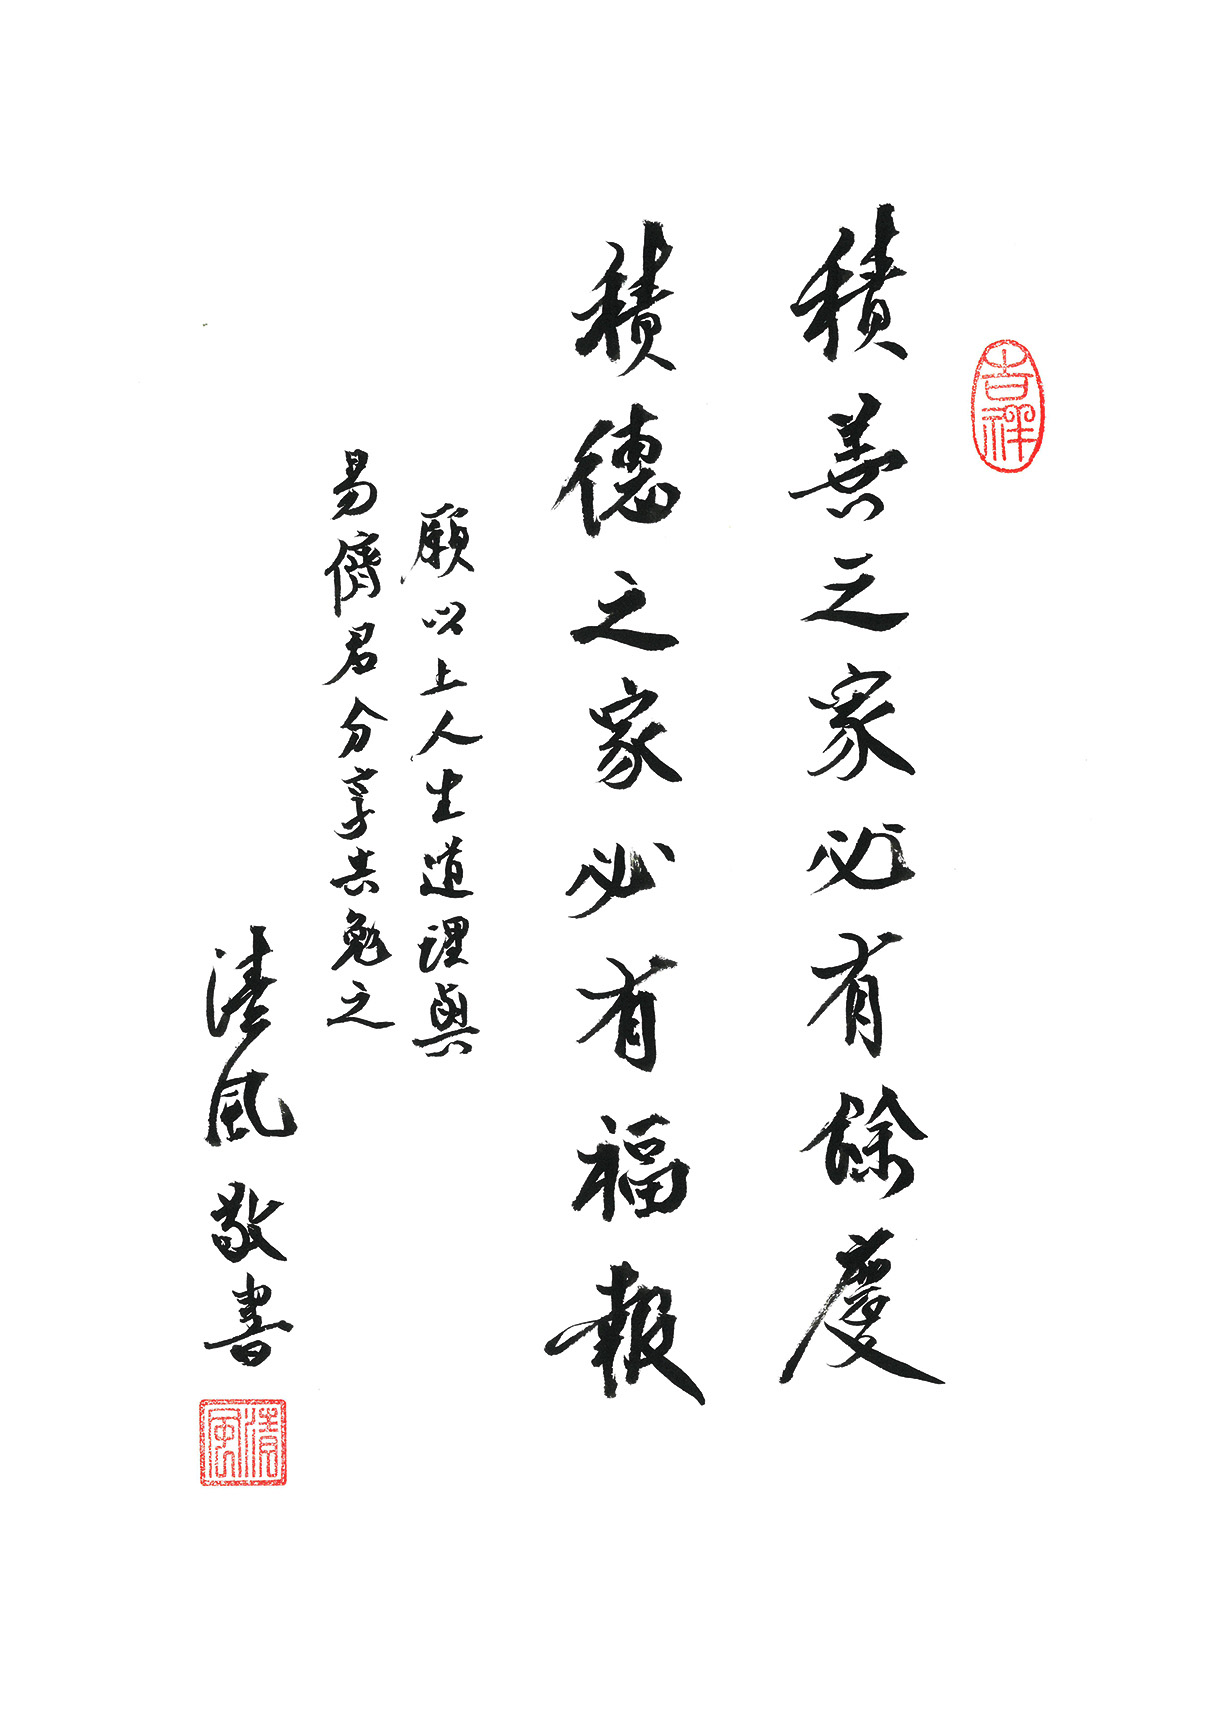 吉祥
積善之家必有餘慶
積德之家必有福報
願以上人生道理與
易儕君分享共勉之
清風敬書
清風